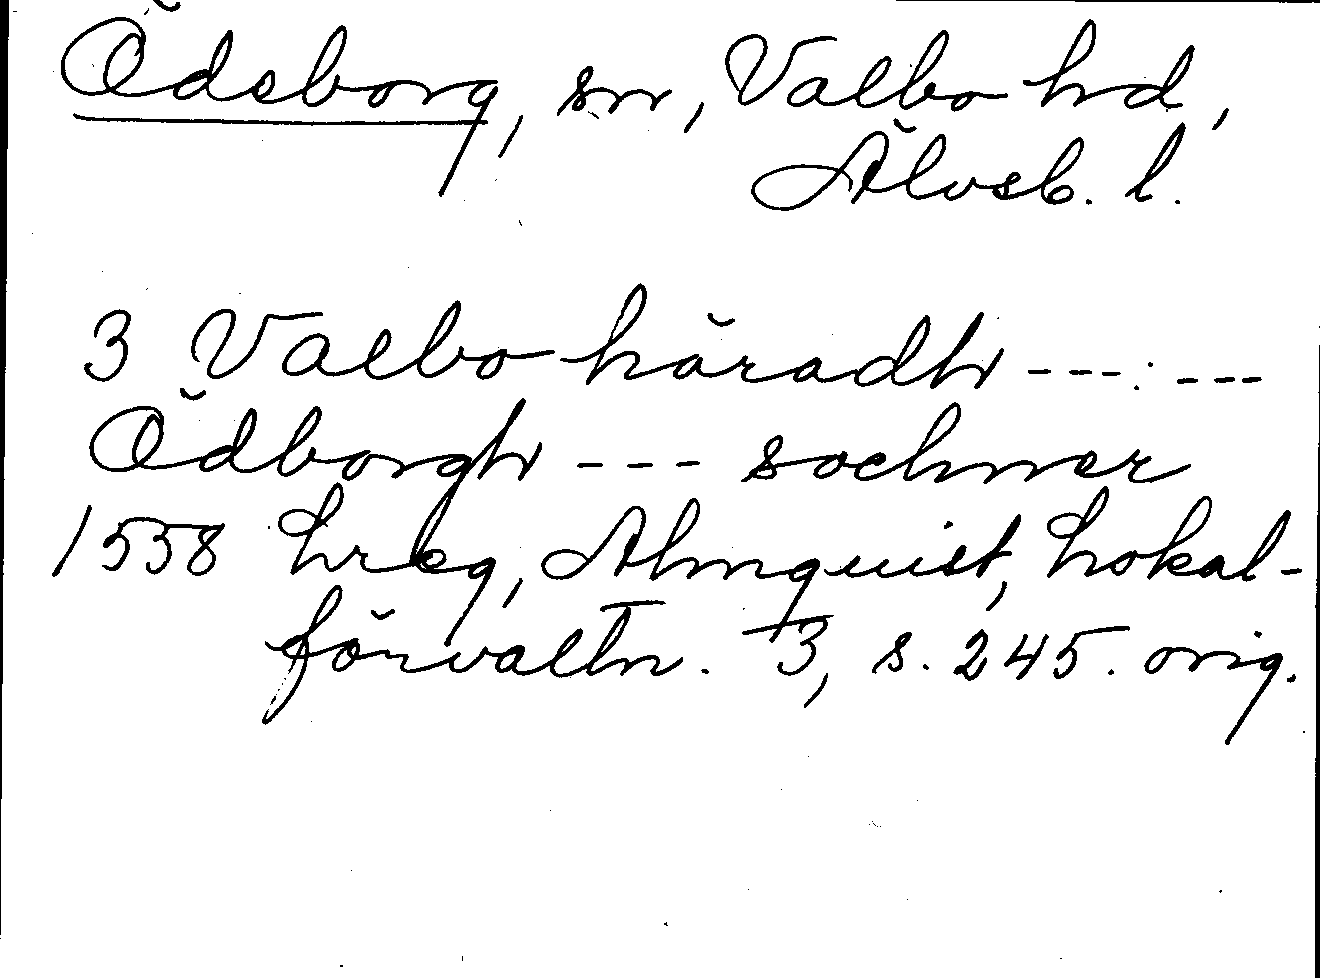 Ödeborg, sn, Valbo hd,
Älvsb. l.
3 Valbo häradh ---:---
Ödborgh --- sochner
1558 hreg, Almquist, Lokal-
förvaltn. 3, s. 245. orig.